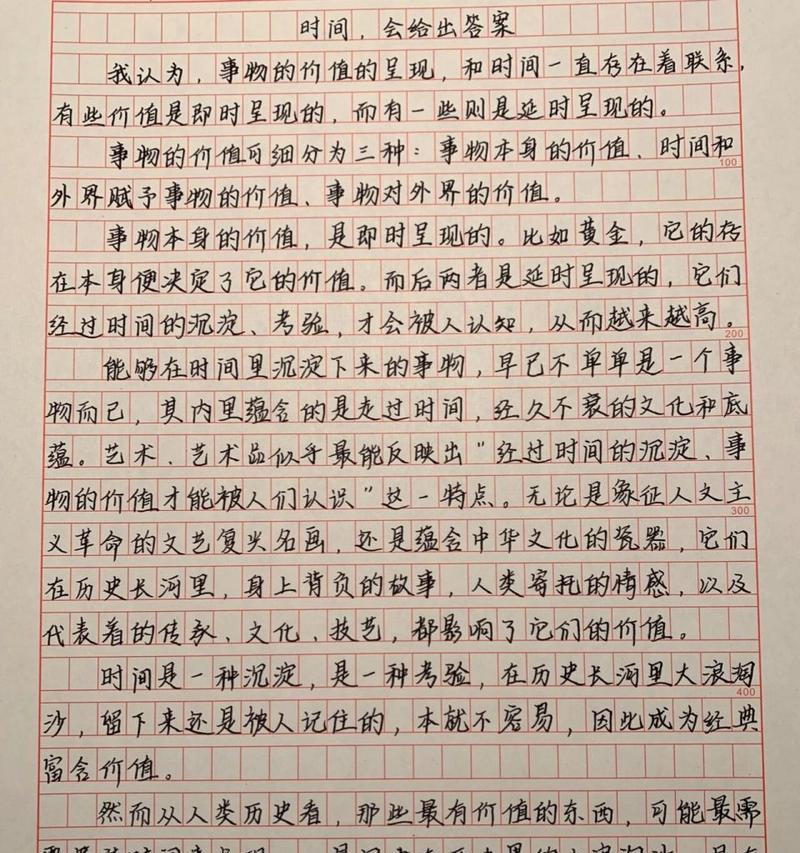 时间，会给出答案
我认为，事物的价值的呈现，和时间一直存在着联系，
有些价值是即时呈现的，而有一些则是延时呈现的。
事物的价值可细分为三种：事物本身的价值、时间和
100
外界赋予事物的价值、事物对外界的价值。
事物本身的价值，是即时呈现的。比如黄金，它的存
在本身便决定了它的价值。而后两者是延时呈现的，它们
经过时间的沉淀、考验，才会被人认知，从而越来越高。
200
能够在时间里沉淀下来的事物，早已不单单是一个事
物而已，其内里蕴含的是走过时间，经久不衰的文化和底
蕴。艺术、艺术品似乎最能反映出“经过时间的沉淀、事
物的价值才能被人们认识”这一特点。无论是象征人文主
300
义革命的文艺复兴名画，还是蕴含中华文化的瓷器，它们
在历史长河里，身上背负的故事，人类寄托的情感，以及
代表着的传承、文化、技艺，都影响了它们的价值。
时间是一种沉淀，是一种考验，在历史长河里大浪淘
400
沙，留下来还是被人记住的，本就不容易，因此成为经典
富含价值。
然而从人类历史看，那些最有价值的东西，可能最需